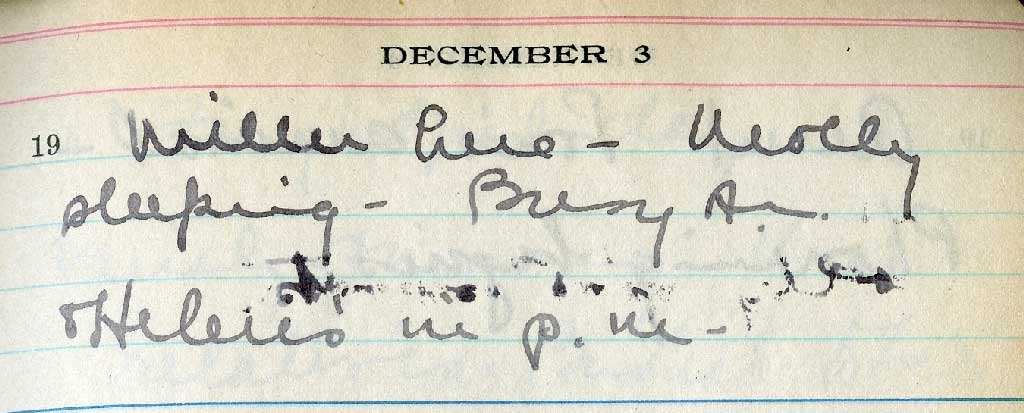 DECEMBER 3
19 Miller here - Molly
sleeping - Busy
Helen's in p.m. -